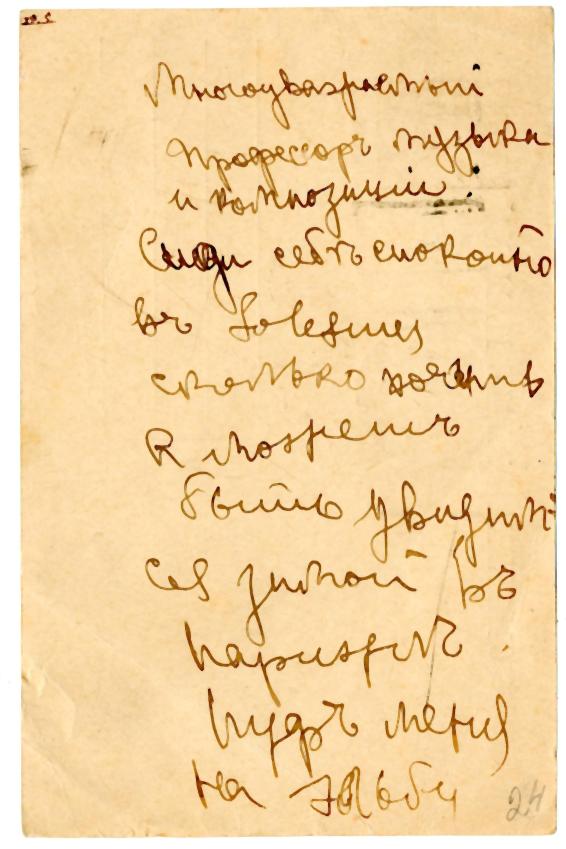 Многоуважаемый
профессоръ музыки
и композиціи.
Сиди себѣ спокойно
въ Solesmes
сколько хочешь
Я можетъ
быть увидим
ся зимой въ
Парижѣ
меня
на
24